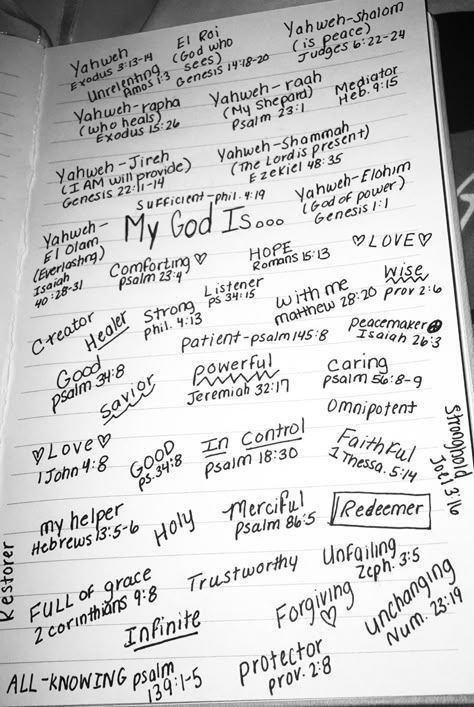 Yahweh
Exodus 3:13-14
El Roi
(God who
sees)
Genesis 14:18-20
Yahweh-Shalom
(is peace)
Judges 6:22-24
Unrelenting
Amos 1:3
Yahweh-rapha
(who heals)
Exodus 15:26
Yahweh-raah
(My Shepard)
Psalm 23:1
Mediator
Heb. 9:15
Yahweh-Jireh
(I AM will provide)
Genesis 22:11-14
Yahweh-Shammah
(The Lord is present)
Ezekiel 48:35
Sufficient-phil. 4:19
My God Is...
Yahweh-Elohim
(God of power)
Genesis 1:1
Yahweh-
El Olam
(Everlasting)
Isaiah
40:28-31
Comforting ♡
psalm 23:4
HOPE
Romans 15:13
♡LOVE♡
Creator
Healer
Strong
phil. 4:13
Listener
ps 34:15
with me
matthew 28:20
Wise
prov 2:6
patient-psalm 145:8
peacemaker☮
Isaiah 26:3
Good
psalm 34:8
Savior
powerful
Jeremiah 32:17
caring
psalm 56:8-9
omnipotent
♡Love♡
1 John 4:8
GOOD
ps. 34:8
In Control
Psalm 18:30
Faithful
1 Thessa. 5:14
Stronghold
Joel 3:16
my helper
Hebrews 13:5-6
Holy
Merciful
Psalm 86:5
Redeemer
Restorer
FULL of grace
2 corinthians 9:8
Trustworthy
Unfailing
Zeph. 3:5
Infinite
Forgiving
♡
unchanging
Num. 23:19
ALL-KNOWING psalm
139:1-5
protector
prov. 2:8